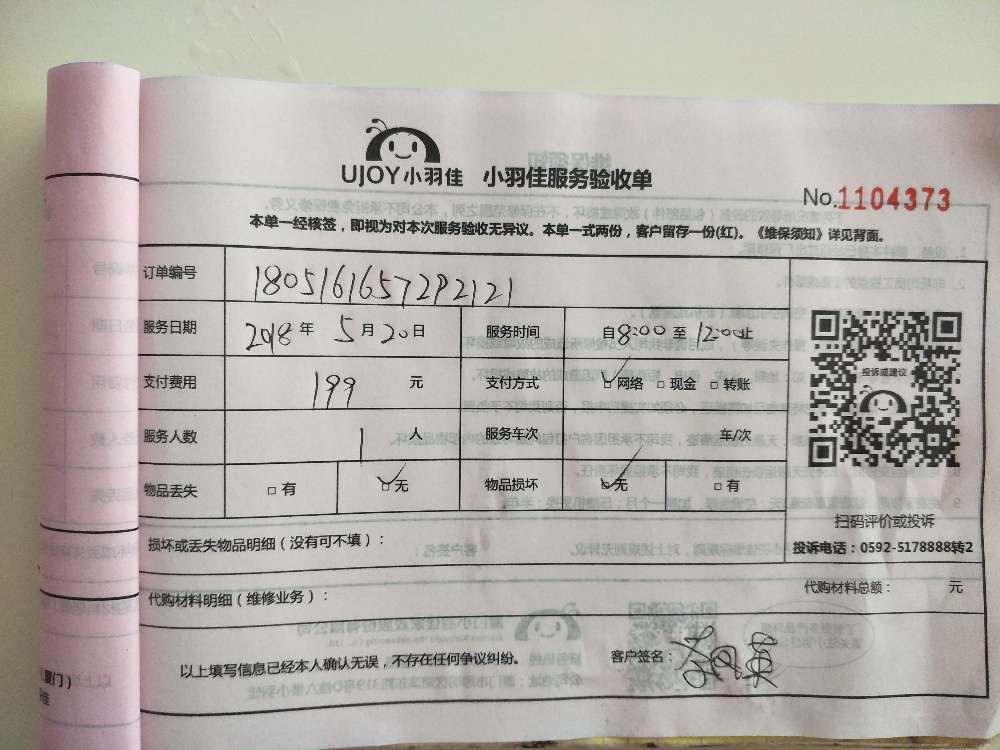 UJOY小羽佳 小羽佳服务验收单
No.1104373
本单一经核签，即视为对本次服务验收无异议。本单一式两份，客户留存一份(红)。《维保须知》详见背面。
订单编号 1805161657292121
服务日期 2018年5月20日 服务时间 自8:00至12:00止
支付费用 199 元 支付方式 网络 现金 转账
投诉或建议
服务人数 1 人 服务车次 车/次
物品丢失 有 无 物品损坏 无 有
扫码评价或投诉
投诉电话：0592-5178888转2
损坏或丢失物品明细（没有可不填）：
代购材料明细（维修业务）： 代购材料总额： 元
以上填写信息已经本人确认无误，不存在任何争议纠纷。 客户签名：